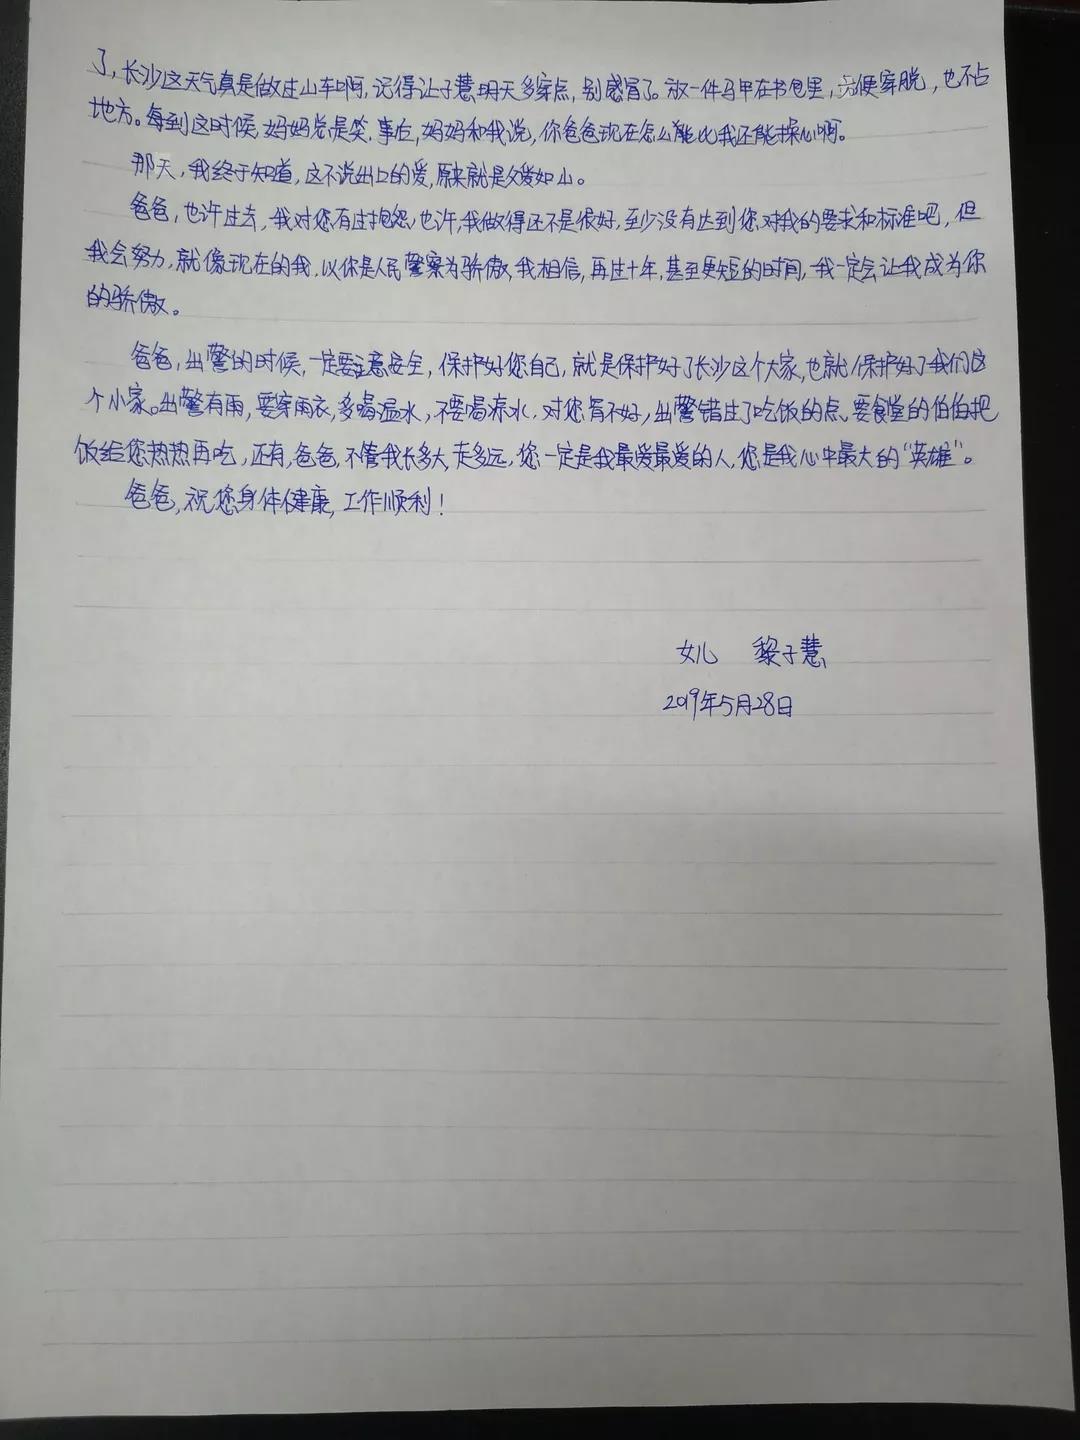 了,长沙这天气真是做过山车啊,记得让子慧明天多穿点,别感冒了。放一件马甲在书包里,方便穿脱,也不占
地方。每到这时候,妈妈总是笑.事后,妈妈和我说,你爸爸现在怎么能比我还能操心啊。
那天,我终于知道,这不说出口的爱,原来就是父爱如山。
爸爸,也许过去,我对您有过抱怨,也许,我做得还不是很好,至少没有达到您对我的要求和标准吧,但
我会努力,就像现在的我,以你是人民警察为骄傲,我相信,再过十年,甚至更短的时间,我一定会让我成为你
的骄傲。
爸爸,出警的时候,一定要注意安全,保护好您自己,就是保护好了长沙这个大家,也就保护好了我们这
个小家。出警有雨,要穿雨衣,多喝温水,不要喝凉水,对您胃不好,出警错过了吃饭的点,要食堂的伯伯把
饭给您热热再吃,还有,爸爸,不管我长多大,走多远,您一定是我最爱最爱的人,您是我心中最大的“英雄”。
爸爸,祝您身体健康,工作顺利!
女儿 黎子慧
2019年5月28日